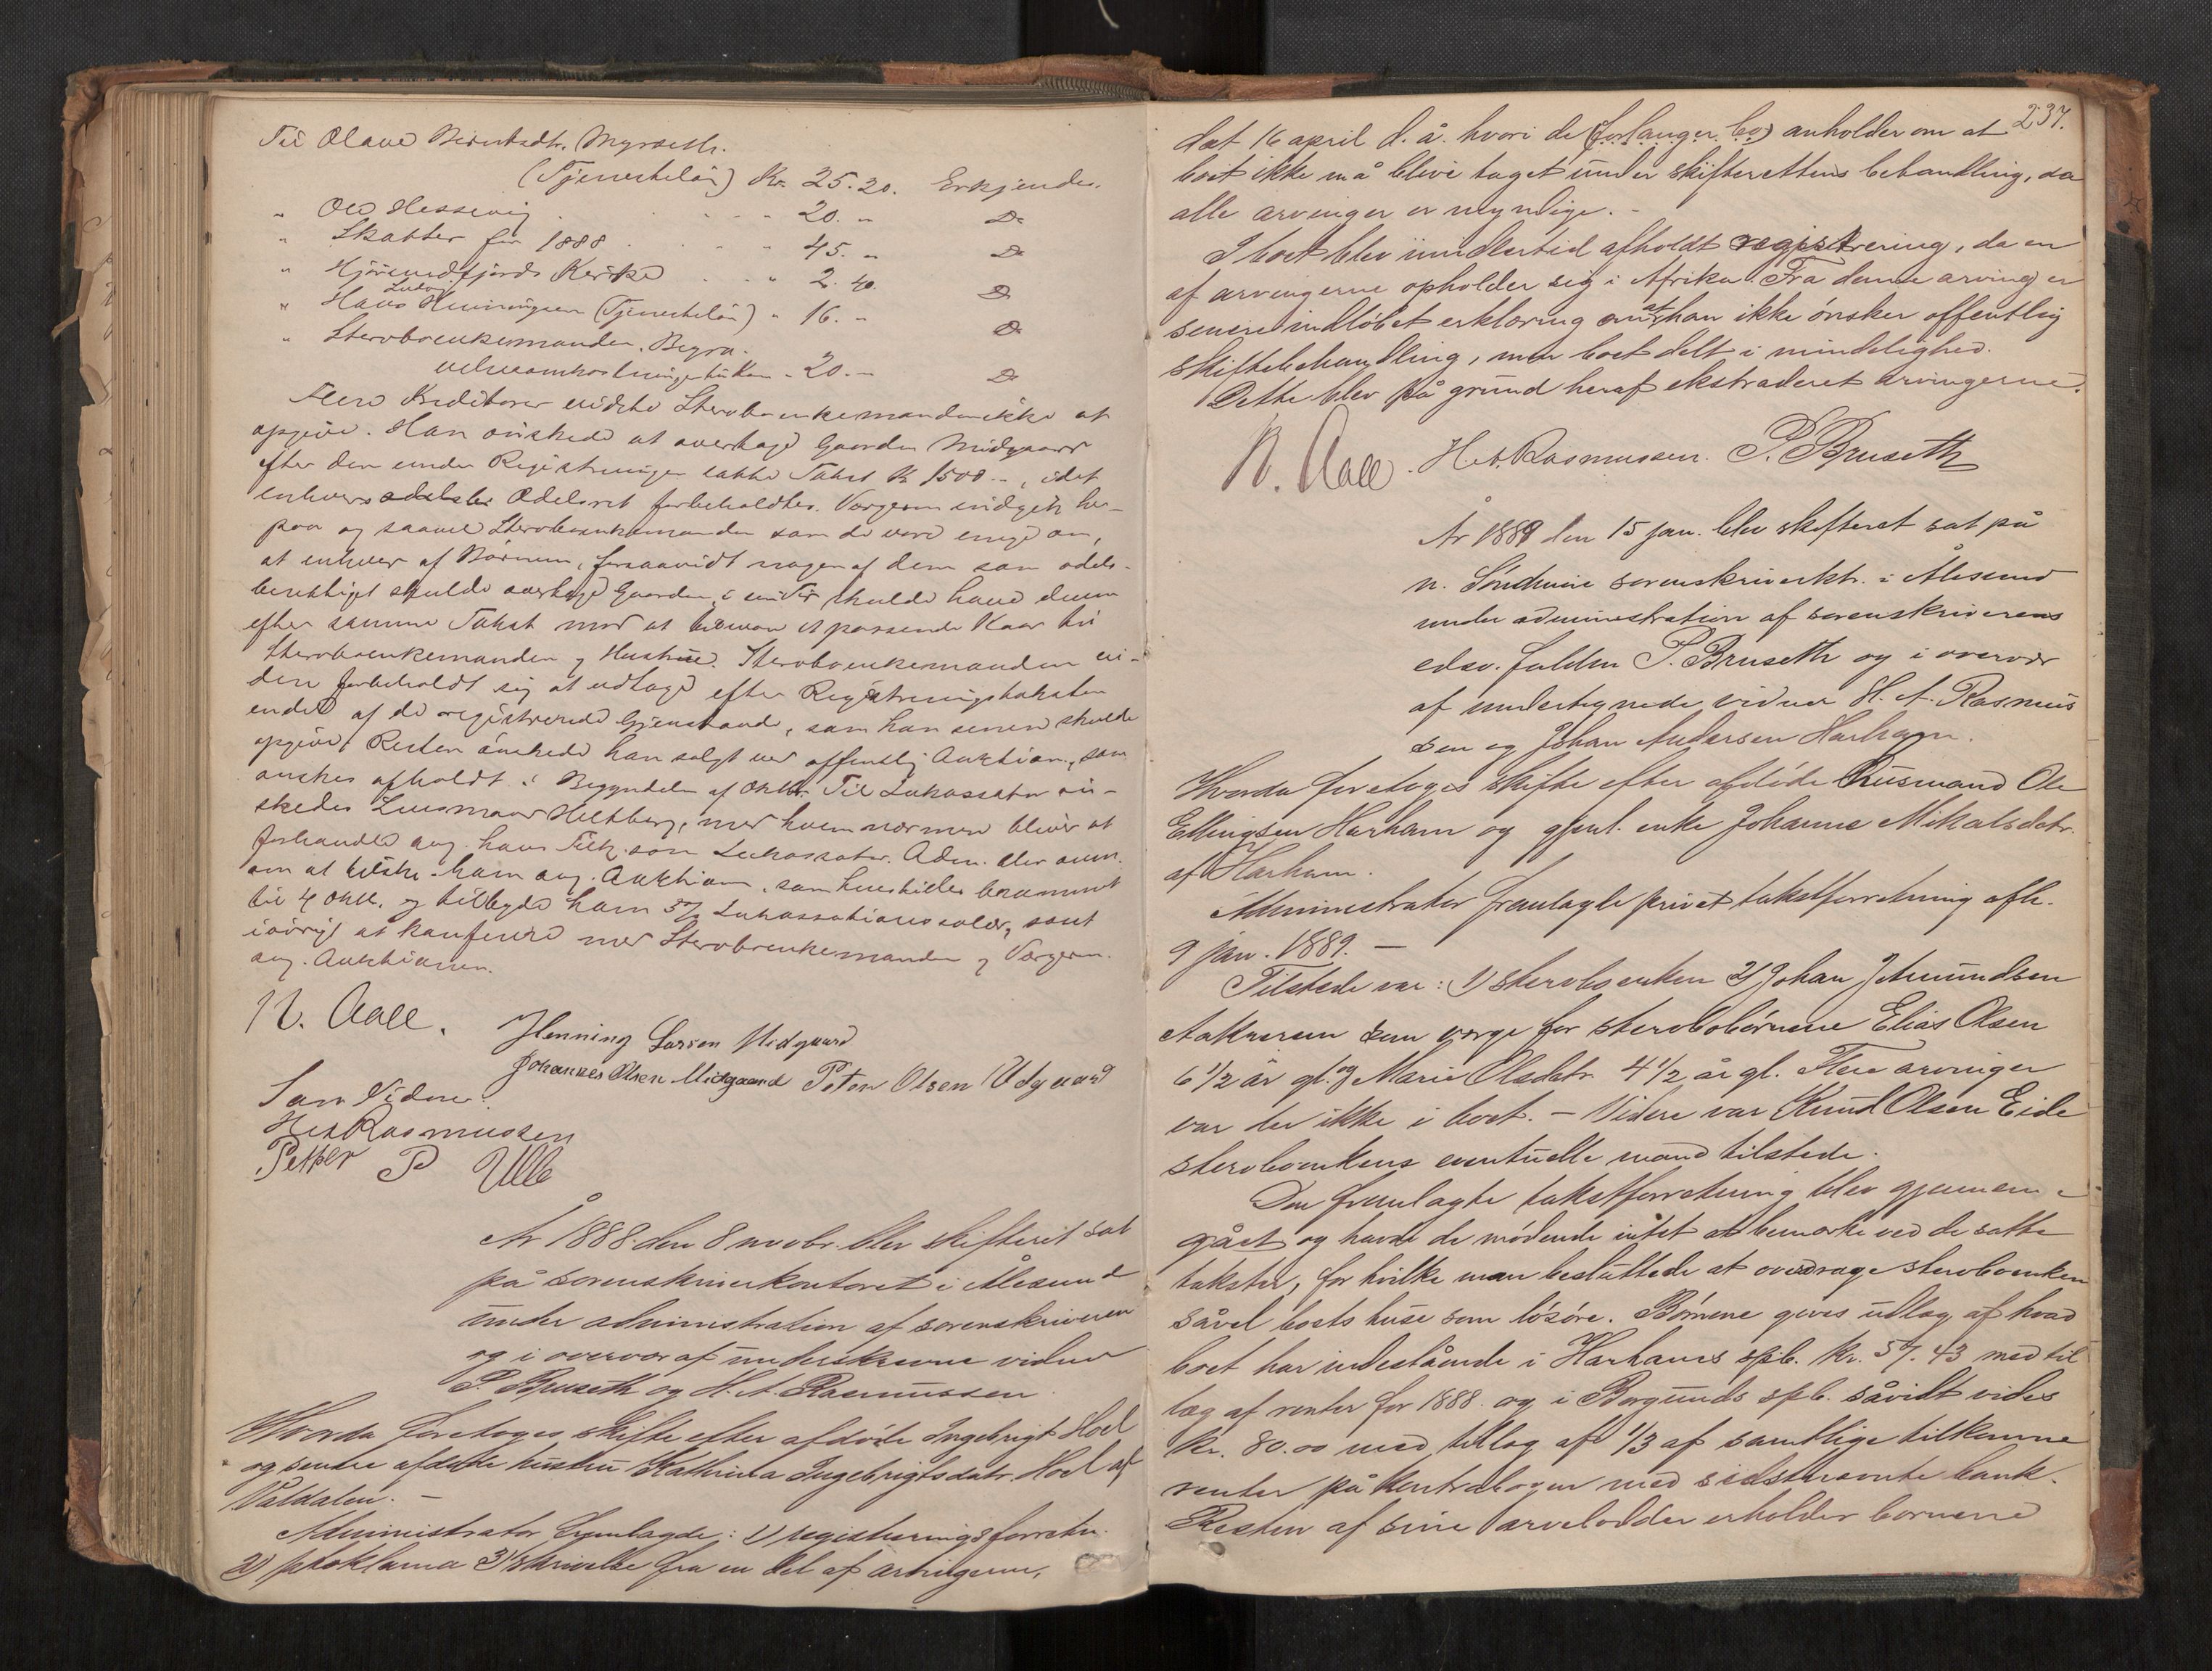 Til Olave Berntsdtr. Myrseth.
(Tjenesteløn) Kr. 25.20. Erkjendes.
" Ole Hessevig " 20. " Do
" Skatter for 1888 " 45. " Do
" Hjørundfjords Kirke " 2.40. Do
" Hans Ludvig Henningsen (Tjenesteløn) " 16. " Do
" Stervboenkemanden, Begra-
velsesomkostninger " 20. " Do
Flere Kreditorer vidste Stervboenkemanden ikke at
opgive. Han ønskede at overtage Gaarden Midgaard
efter den under Registreringen satte Takst Kr 1500 -, idet
enhvers Odelsret forbeholdtes. Værgerne indgik her-
paa og saavel Stervboenkemanden som de vare enige om,
at enhver af Børnene, forsaavidt nogen af dem som odels-
berettiget skulde overtage Gaarden, skulde have denne
efter samme Takst mod at et passende Kaar til
Stervboenkemanden og Hustrue. Stervboenkemanden vi-
dere forbeholdt sig at udtage efter Registreringstaksten
endel af de registrerede Gjenstande, som han senere skulde
opgive. Resten ønskede han solgt ved offentlig Auktion, som
ønskes afholdt i Begyndelsen af Oktbr. Til Inkassator øn-
skedes Lensmand Heltberg, med hvem nærmere bliver at
forhandle ang. hans som Inkassator. Adm. blev anm.
om at tilskr. ham ang. Auktionen, som berammet
til 4 Oktbr. og tilbyde ham 5% Inkassationssalær, samt
iøvrigt at konferere med Stervboenkemanden og Værgerne
ang. Auktionen.
N. Aall. Henning Larsen Midgaard
Johannes Olsen Midgaard Peter Olsen Udgaard
Som Vidner:
H A Rasmussen
Petter P Ulle
År 1888 den 8 novbr. blev skifteret sat
på sorenskriverkontoret i Ålesund
under administration af sorenskriveren
og i overvær af underskrevne vidner
P. Bruseth og H. A. Rasmussen.
Hvorda foretoges skifte efter afdøde Ingebrigt Hoel
og senere afdøde hustru Kathrina Ingebrigtsdatr. Hoel af
Valdalen. -
Administrator fremlagde: 1) registreringsforretn.
2) proklama 3) skrivelse fra en del af arvingerne,
237.
dat 16 april d. å. hvori de (forlanger bo) anholder om at
boet ikke må blive taget under skifterettens behandling, da
alle arvinger er myndige. -
I boet blev imidlertid afholdt registrering, da en
af arvingerne opholder sig i Afrika. Fra denne arving er
senere indløbet erklæring at han ikke ønsker offentlig
skiftebehandling, men boet delt i mindelighed.
Dette blev på grund heraf ekstraderet arvingerne.
N. Aall. H. A. Rasmussen. P. Bruseth
År 1889 den 15 jan. blev skifteret sat på
n. Søndmøre sorenskriverktr. i Ålesund
under administration af sorenskriverens
edsv. fuldm P. Bruseth og i overvær
af undertegnede vidner H. A. Rasmus
sen og Johan Andersen Harham.
Hvorda foretoges skifte efter afdøde husmand Ole
Ellingsen Harham og gjenl. enke Johanne Mikalsdatr.
af Harham.
Administrator fremlagte privat takstforretning afh.
9 jan. 1889. -
Tilstede var: 1) stervboenken 2) Johan J Amundsen
Aakrem som værge for stervbobørnene Elias Olsen
6 1/2 år gl. og Marie Olsdatr. 4 1/2 år gl. Flere arvinger
var der ikke i boet. - Videre var Knud Olsen Eide
stervboenkens eventuelle mand tilstede.
Den fremlagte takstforretning blev gjennem-
gået og havde de mødende intet at bemærke ved de satte
takster, for hvilke man besluttede at overdrage stervboenken
såvel boets huse som løsøre. Børnene gives udlæg af hvad
boet har indestående i Harhams spb. kr. 57.43 med til
læg af renter for 1888 og i Borgunds spb. såvidt vides
kr. 80.00 med tillæg af 1/3 af samtlige tilkomne
renter på kontrabogen med sidstnævnte bank.
Resten af sine arvelodder erholder børnene